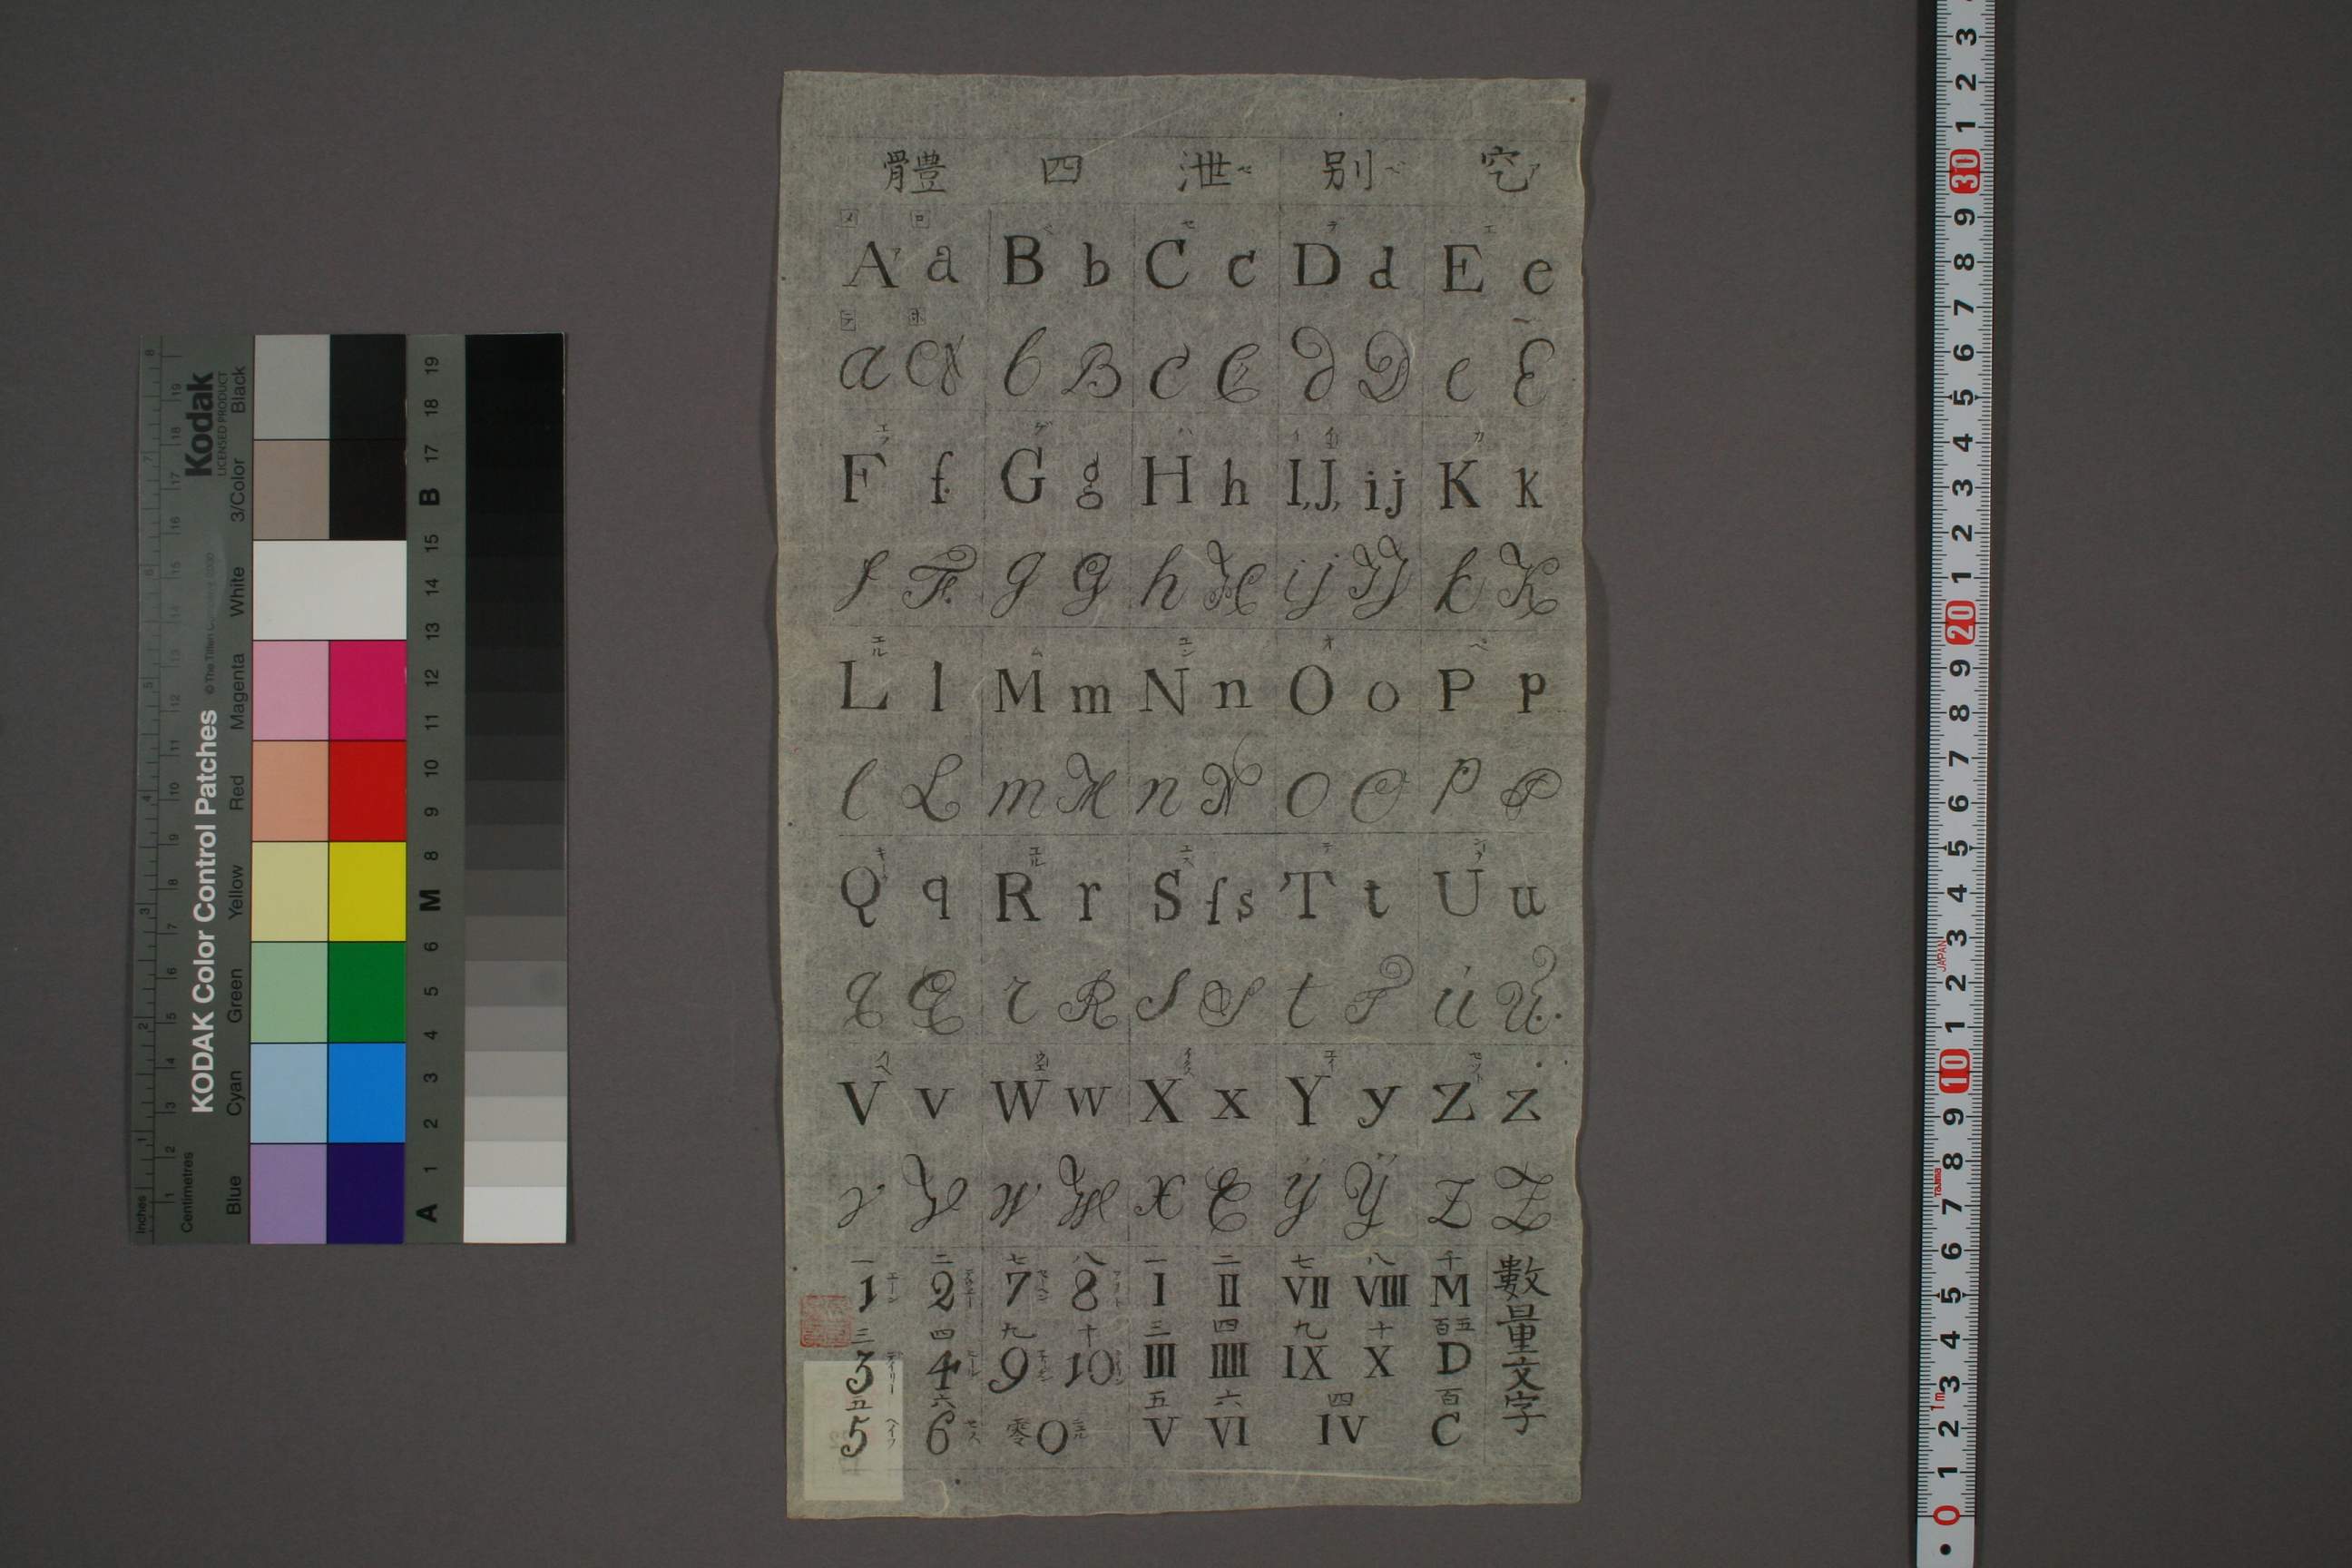 体四泄別它
A a B b C c D d E e
a A b B c C d D e E
F f G g H h I,J, ij K k
f F g G h H ij IJ k K
L l M m N n O o P p
l L m M n N o O p P
Q q R r S ſs T t U u
q Q r R s S t T u U
V v W w X x Y y Z z
v V w W x X ÿ Ÿ z Z
數量文字
一 二 七 八 一 二 七 八 千
1 2 7 8 I II VII VIII M
三 四 九 十 三 四 九 十 五百
3 4 9 10 III IIII IX X D
五 六 五 六 四 百
5 6 零 0 V VI IV C
KODAK Color Control Patches
© The Tiffen Company, 2000
Kodak
LICENSED PRODUCT
Inches
Centimetres
Blue Cyan Green Yellow Red Magenta White 3/Color Black
A 1 2 3 4 5 6 M 8 9 10 11 12 13 14 15 B 17 18 19
0 1 2 3 4 5 6 7 8 9 10 1 2 3 4 5 6 7 8 9 20 1 2 3 4 5 6 7 8 9 30 1 2 3
1m
Tajima
JAPAN